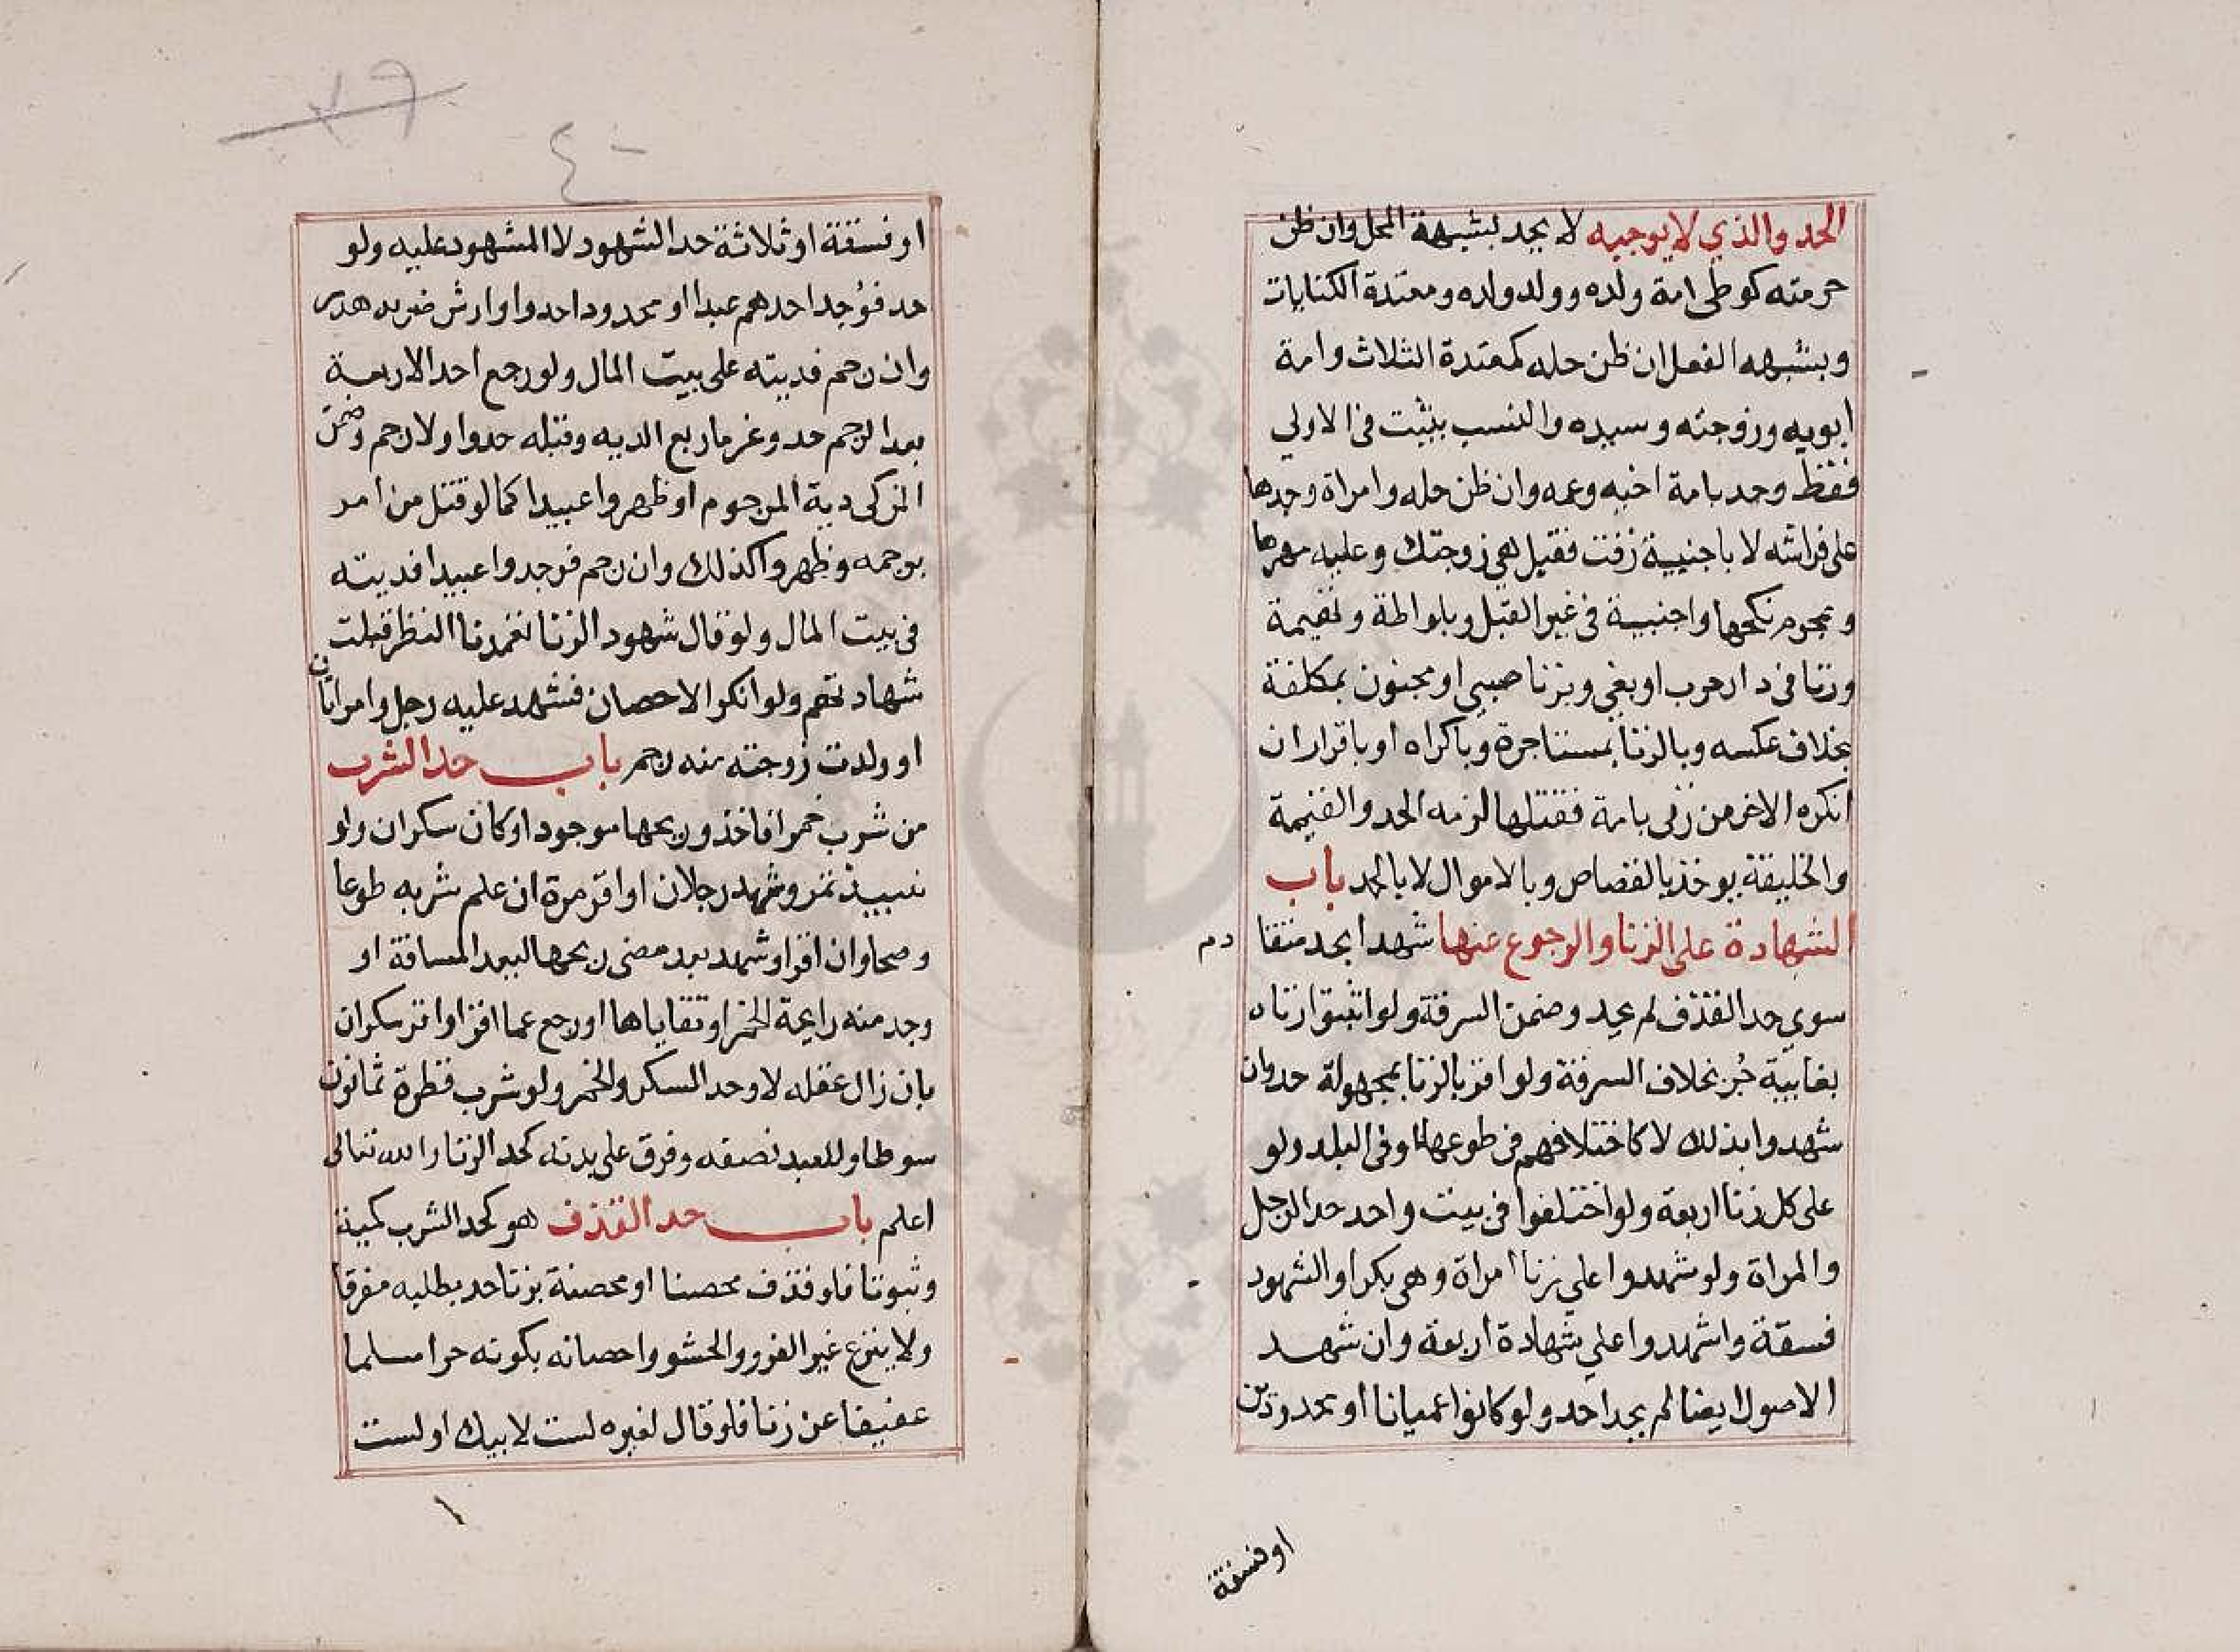 الحد والذي لا يوجبه لا يحد بشبهة المحل وان ظن
حرمته كوطئ امة ولده وولد ولده ومعتدة الكنايات
وبشبهه الفعل ان ظن حله كمعتدة الثلاث وامة
ابويه وزوجته وسيده والنسب يثبت في الاولي
فقط وحد بامة اخيه وعمه وان ظن حله وامراة وجدها
علي فراشه لا باجنبية زفت فقيل هي زوجتك وعليه مهرها
وبمحرم نكحها واجنبية في غير القبل وبلواطة وبهيمة
وزنا في دار حرب او بغي وبزنا صبي او مجنون بمكلفة
بخلاف عكسه وبالزنا بمستاجرة وباكراه او باقرار ان
انكره الاخر من زني بامة فقتلها لزمه الحد والقيمة
والخليفة يوخذ بالقصاص وبالاموال لا بالحد باب
الشهادة علي الزنا والرجوع عنها شهدا بحد متقا دم
سوي حد القذف لم يحد وضمن السرقة ولو اثبتوا زناه
بغايبة حُد بخلاف السرقة ولو اقر بالزنا بمجهولة حد وان
شهدوا بذلك لا كاختلافهم في طوعها او في البلد ولو
علي كل زنا اربعة ولو اختلفوا في بيت واحد حد الرجل
والمراة ولو شهدوا علي زنا امراة وهي بكر او الشهود
فسقة واشهدوا علي شهادة اربعة وان شهد
الاصول ايضا لم يحد احد ولو كانوا عميانا او محدودين
او فسقة
٤٠
او فسقة او ثلاثة حد الشهود لا المشهود عليه ولو
حد فوُجد احدهم عبدا او محدودا حدوا وارش ضربه هدر
وان رجم فديته علي بيت المال ولو رجع احد الاربعة
بعد الرجم حد وغرم ربع الديه وقبله حدوا ولا رجم وضمن
المزكي دية المرجوم ان ظهروا عبيدا كما لو قتل من امر
برجمه وظهروا كذلك وان رجم فوجدوا عبيدا فديته
في بيت المال ولو قال شهود الزنا تعمدنا النظر قبلت
شهادتهم ولو انكر الاحصان فشهد عليه رجل وامراتان
او ولدت زوجته منه رجم باب حد الشرب
من شرب خمرا فاخذ وريحها موجود او كان سكران ولو
بنبيذ تمر وشهد رجلان او اقر مرة ان علم شربه طوعا
وصحا وان اقر او شهد بعد مضي ريحها لا لبعد المسافة او
وجد منه رايحة الخمر او تقاياها او رجع عما اقر او اقر سكران
بان زال عقله لا وحد السكر والخمر ولو شرب قطرة ثمانون
سوطا وللعبد نصفه وفرق علي بدنه كحد الزنا والله تعالي
اعلم باب حد القذف هو كحد الشرب كمية
وثبوتا فلو قذف محصنا او محصنة بزنا حد بطلبه مفرقا
ولا ينزع غير الفرو والحشو واحصانه بكونه حرا مسلما
عفيفا عن زنا فلو قال لغيره لست لابيك او لست